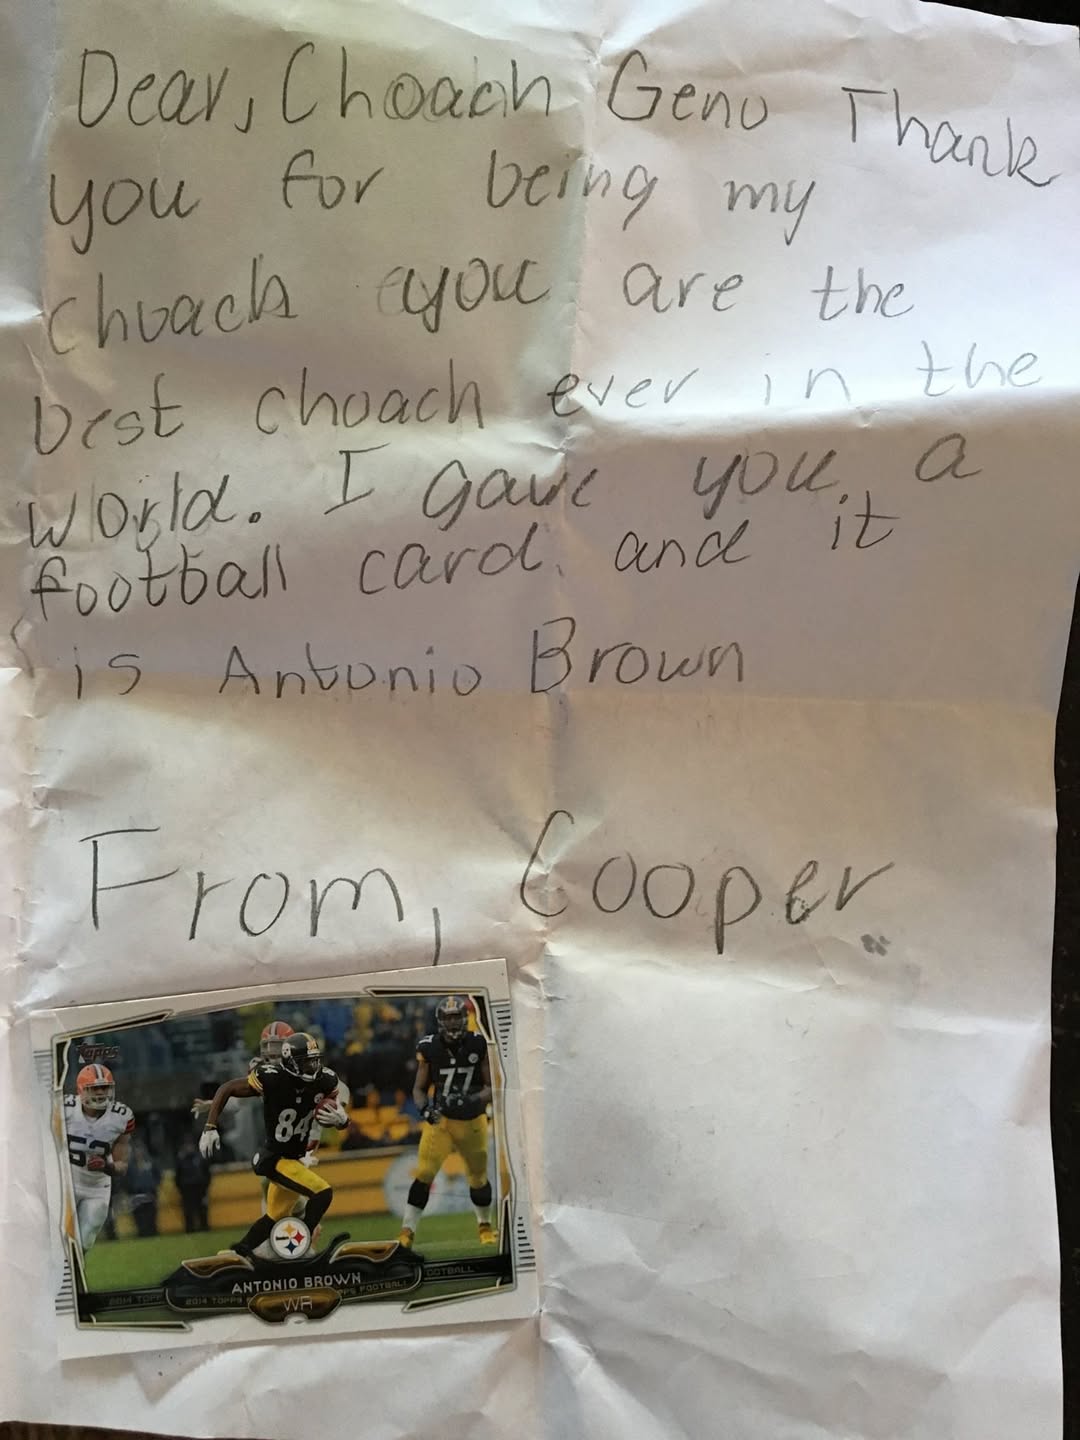 Dear, Choach Geno Thank
you for being my
choach you are the
best choach ever in the
world. I gave you a
football card and it
is Antonio Brown
From, Cooper
Topps
53
84
77
ANTONIO BROWN
2014 TOPPS FOOTBALL
WR